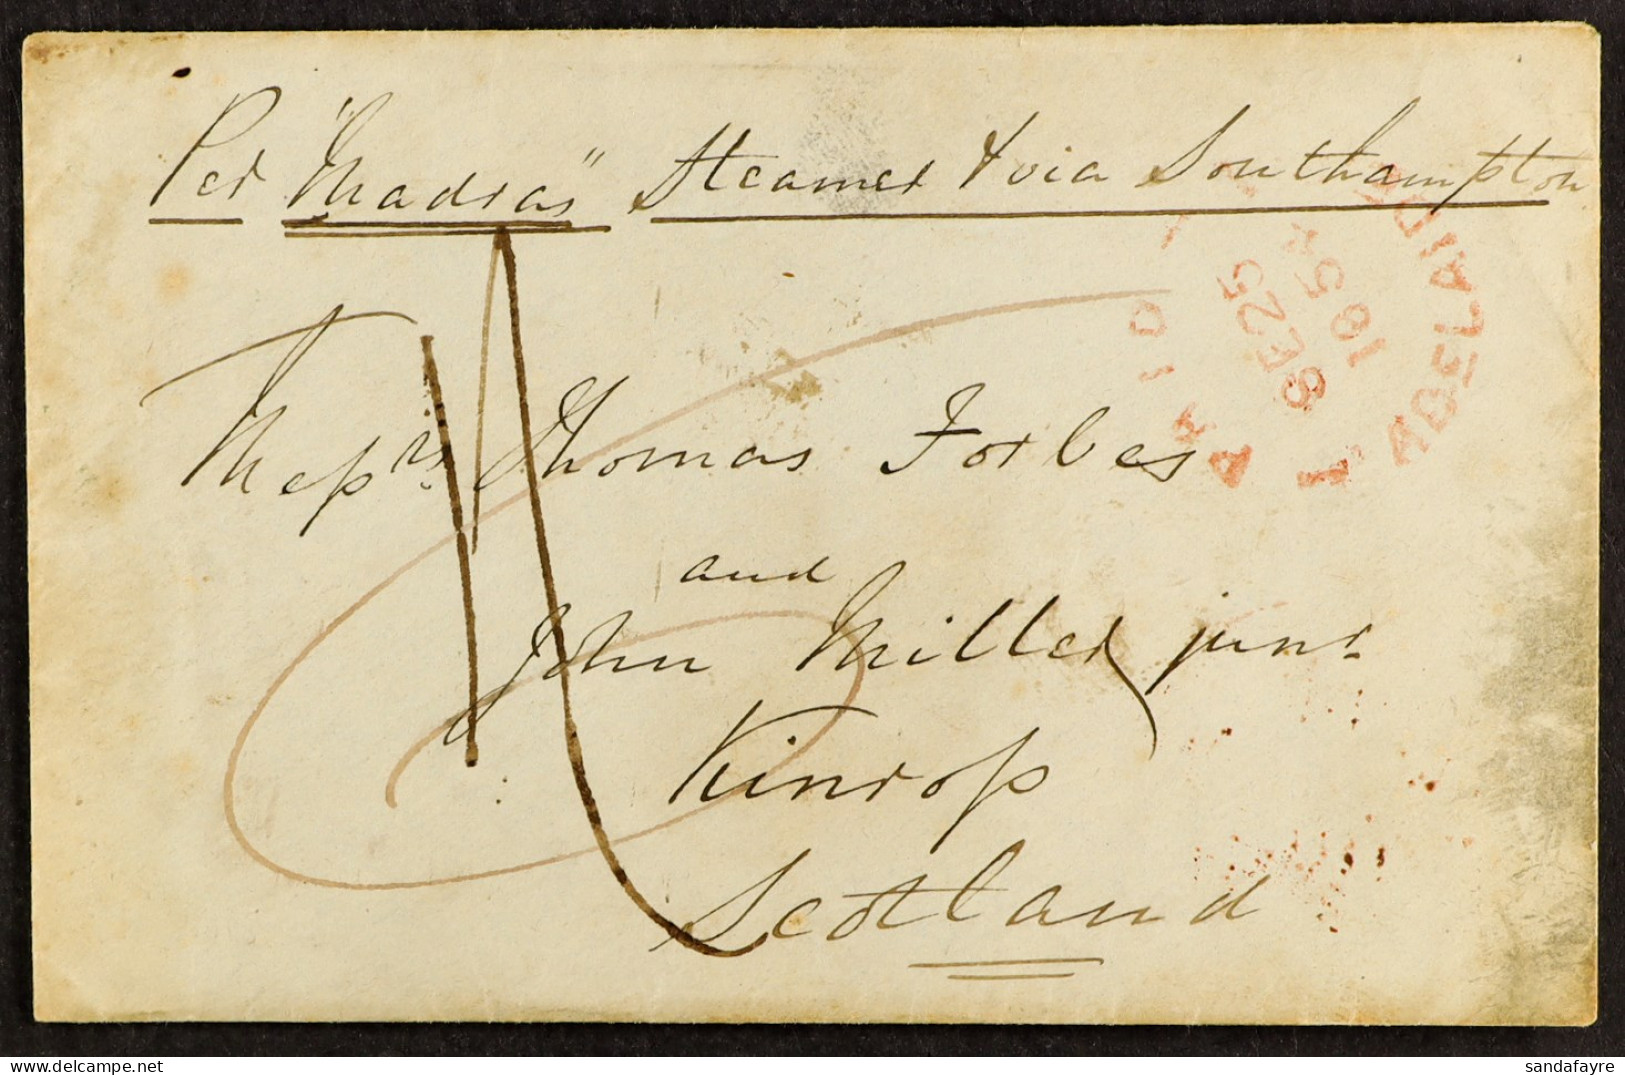 Per "Madras" Steamer & via Southampton
ADELAIDE
SE 25
185
Messrs. Thomas Forbes
and
John Miller junr
Kinross
Scotland
sandafayre